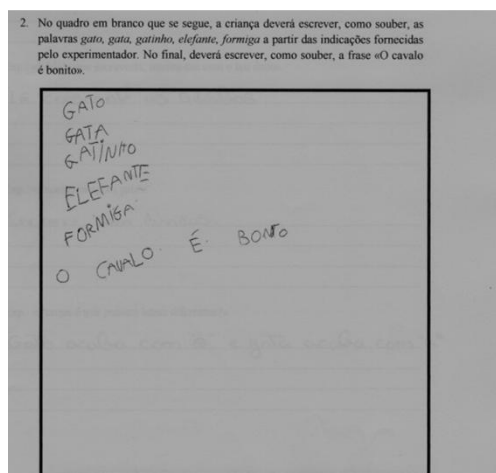 2. No quadro em branco que se segue, a criança deverá escrever, como souber, as
palavras gato, gata, gatinho, elefante, formiga a partir das indicações fornecidas
pelo experimentador. No final, deverá escrever, como souber, a frase «O cavalo
é bonito».
GATO
GATA
GATINHO
ELEFANTE
FORMIGA
O CAVALO. É. BONITO